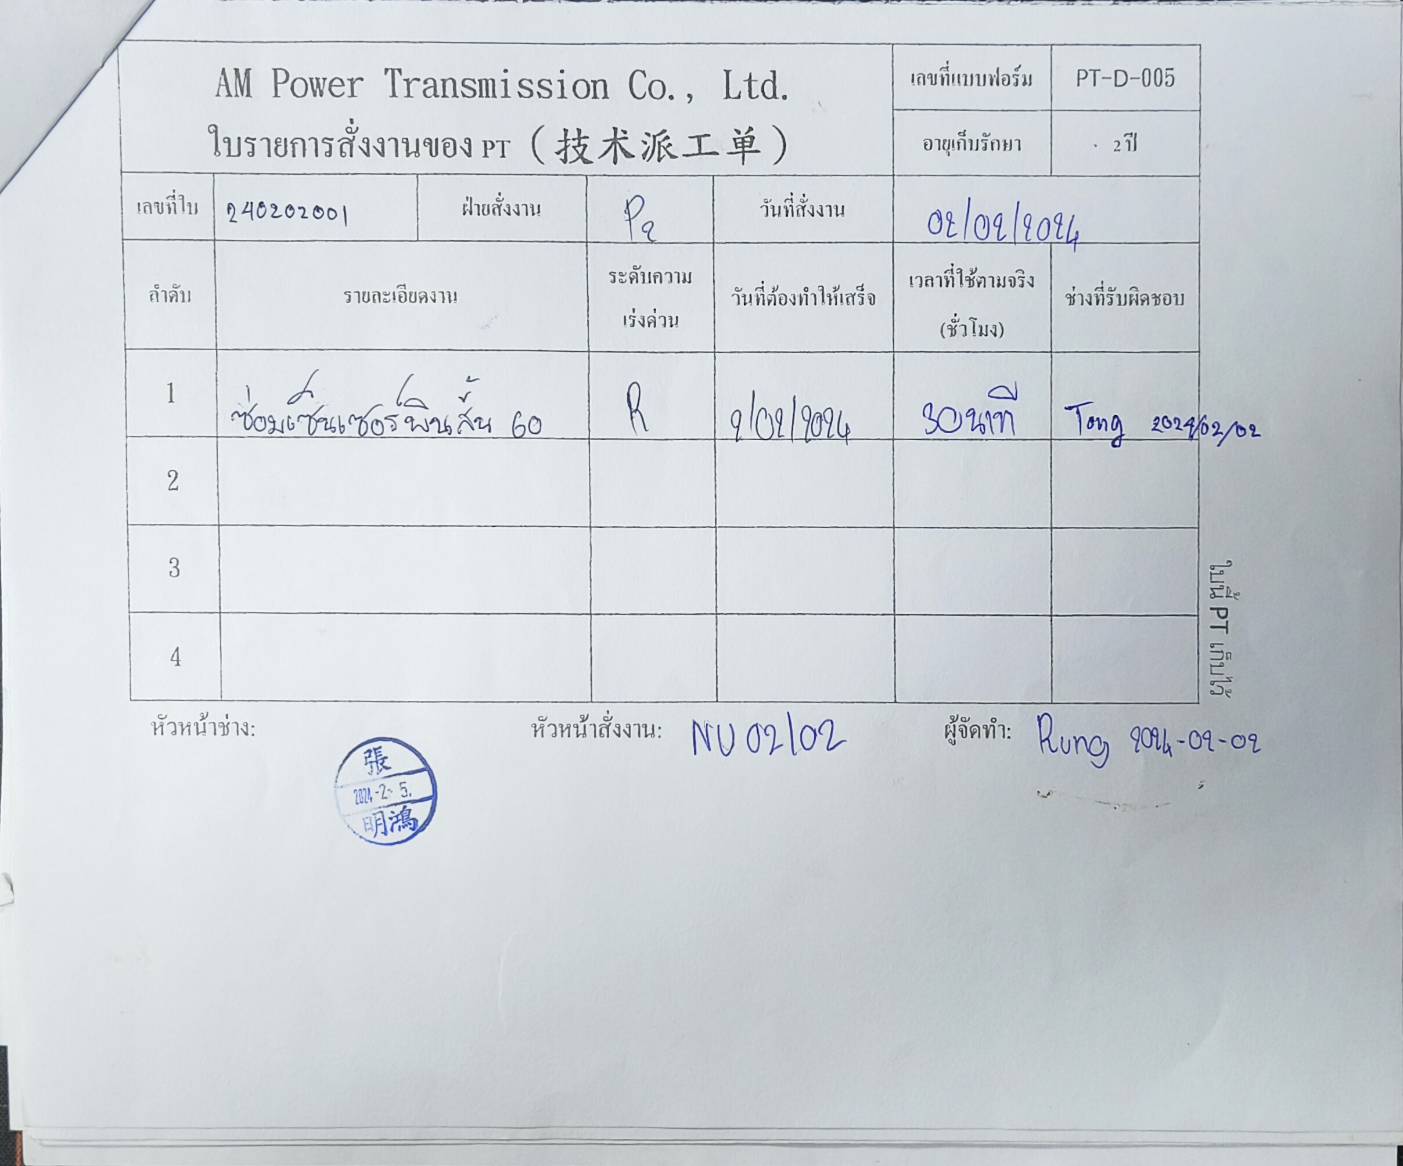 AM Power Transmission Co., Ltd.
ใบรายการสั่งงานของ PT (技术派工单)
เลขที่แบบฟอร์ม PT-D-005
อายุเก็บรักษา 2 ปี
เลขที่ใบ 240202001 ฝ่ายสั่งงาน P2 วันที่สั่งงาน 02/02/2024
ลำดับ รายละเอียดงาน ระดับความเร่งด่วน วันที่ต้องทำให้เสร็จ เวลาที่ใช้ตามจริง (ชั่วโมง) ช่างที่รับผิดชอบ
1 ซ่อมเซ็นเซอร์พินสั้น 60 R 2/02/2024 30 นาที Tong 2024/02/02
2
3
4
ใบนี้ PT เก็บไว้
หัวหน้าช่าง: หัวหน้าสั่งงาน: NU 02/02 ผู้จัดทำ: Rung 2024-02-02
張
2024-2-5.
明鴻